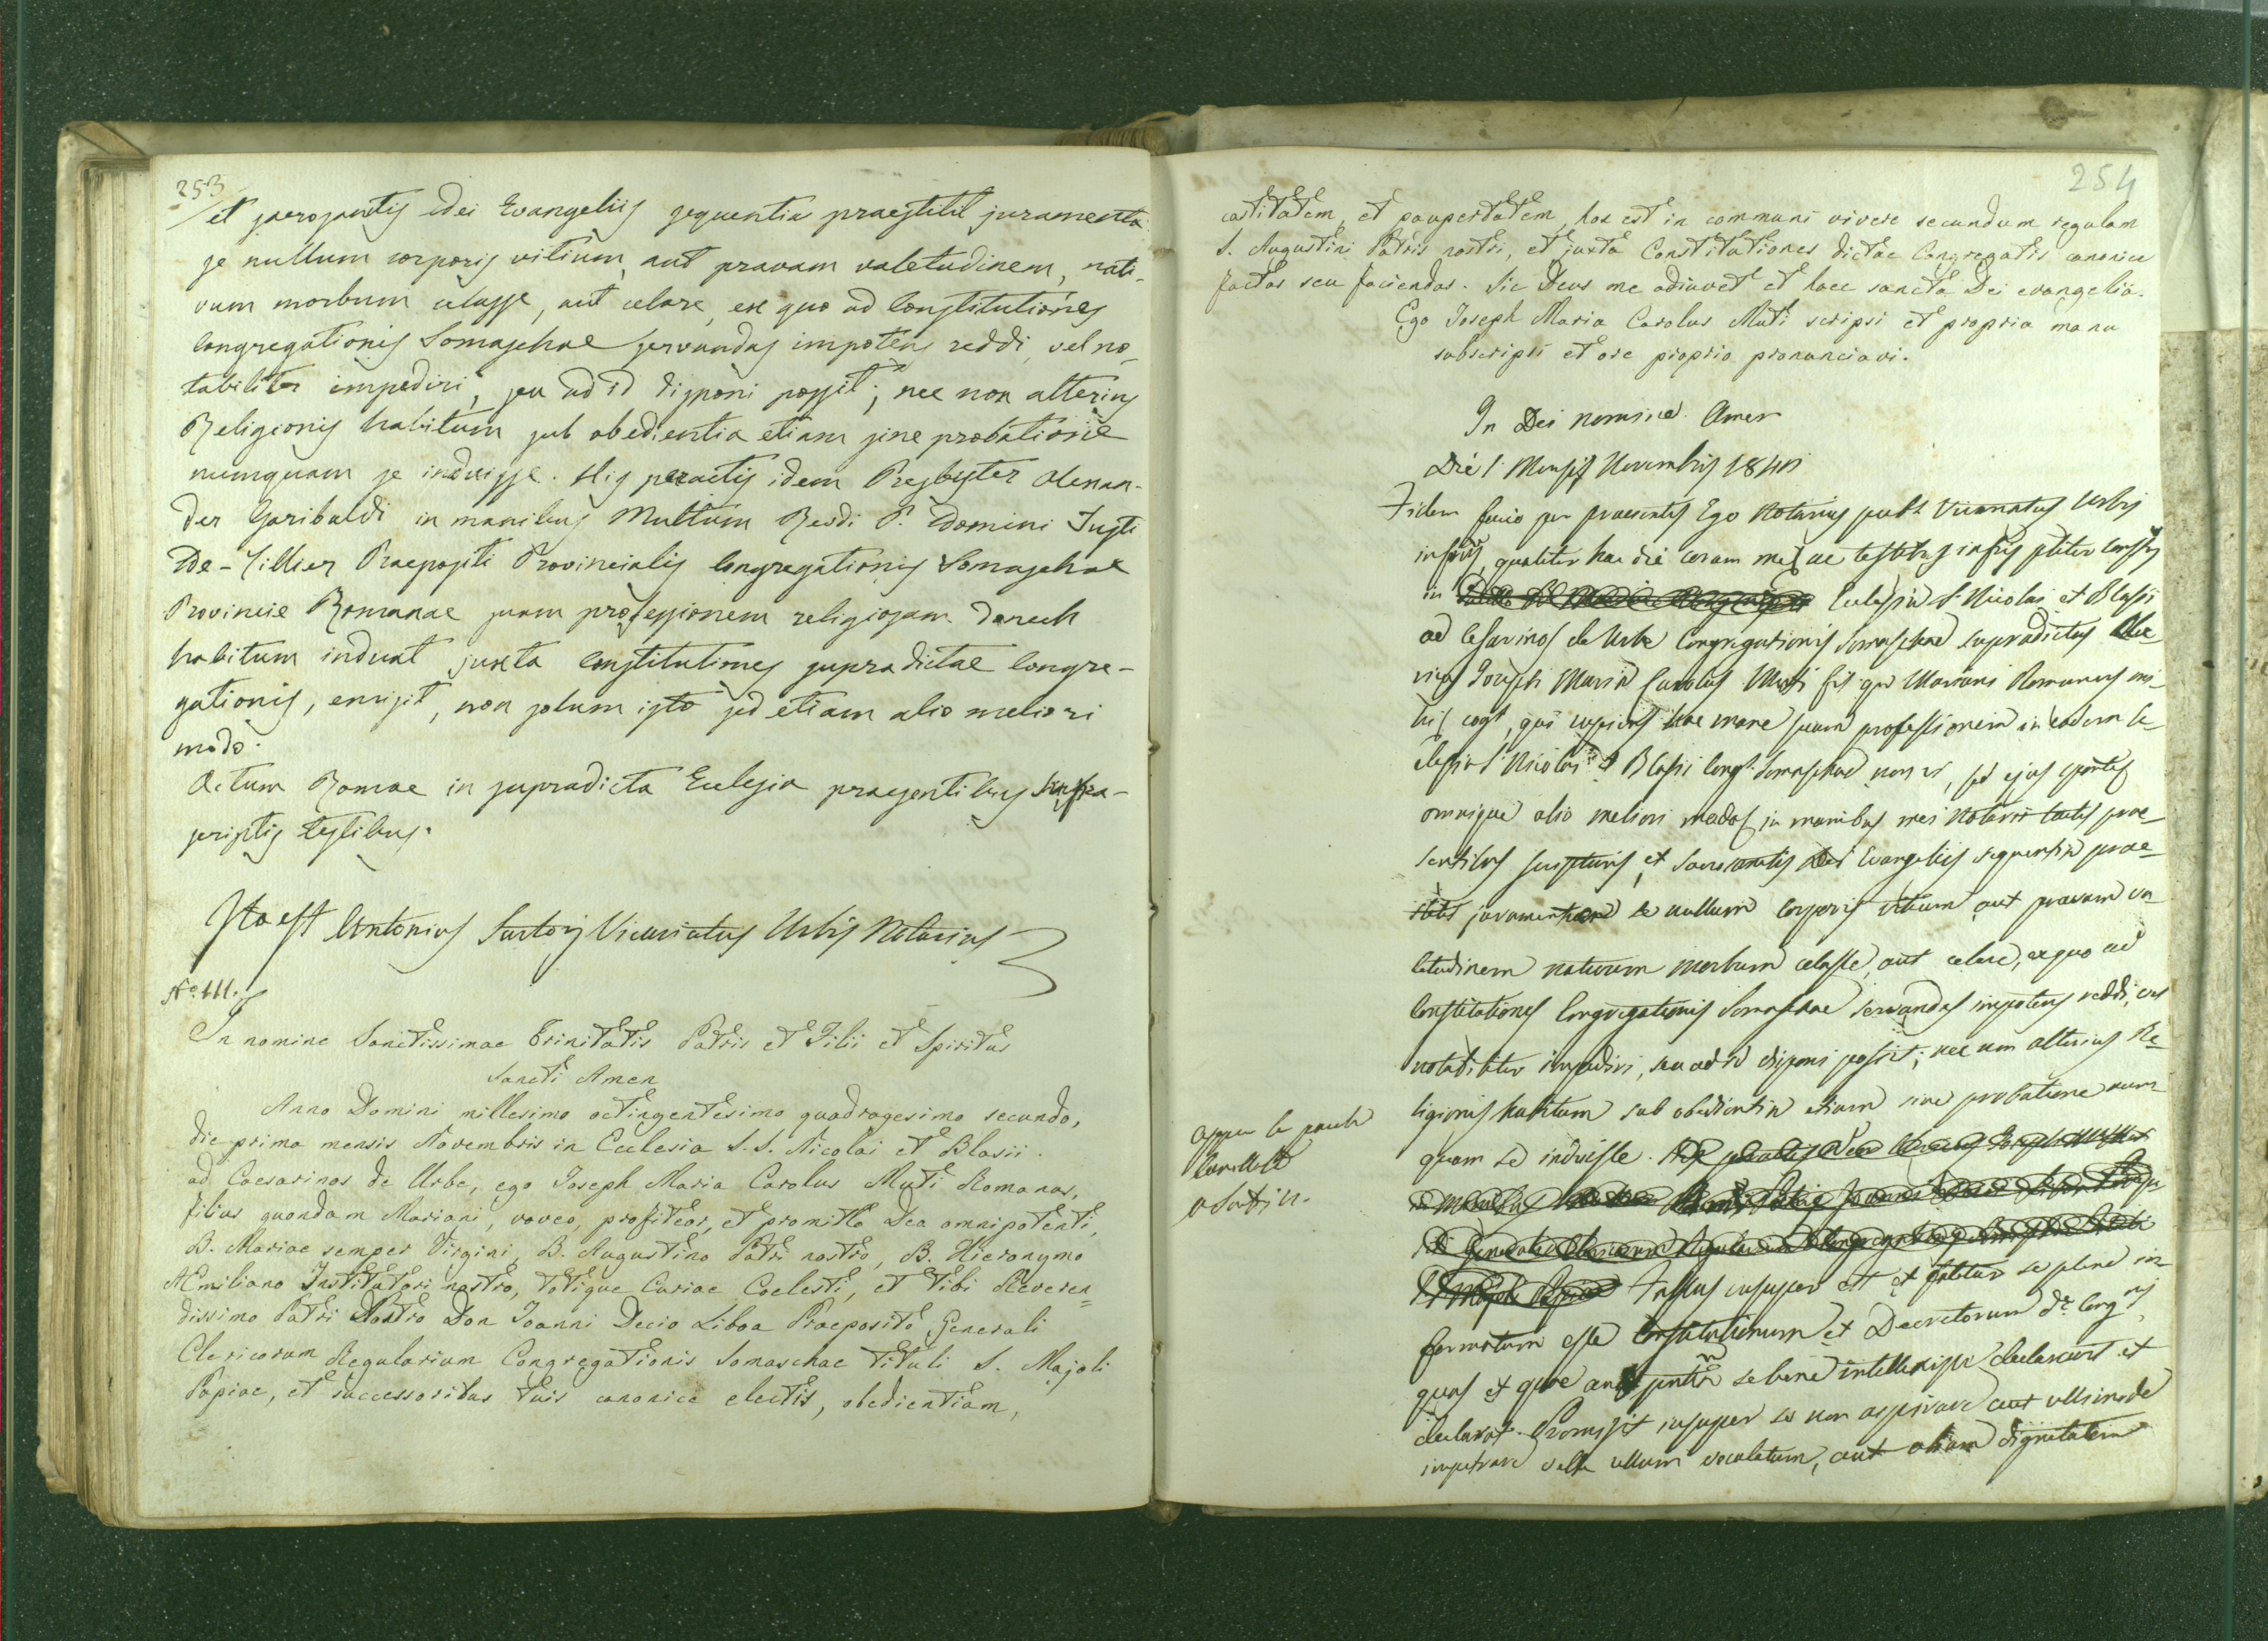 253
et sacrosantis Dei Evangeliis sequentia praestitit juramenta
se nullum corporis vitium, aut pravam valetudinem, nati-
vum morbum celasse, aut celare, ex quo ad Constitutiones
Congregationis Somaschae servandas impotens reddi, vel no-
tabiliter impediri, seu ad id disponi possit; nec non alterius
Religionis habitum sub obedientia etiam sine probatione
numquam se induisse. His peractis idem Presbyter Alexan-
der Garibaldi in manibus Multum Rev.di P. Domini Justi
De-Tillier Praepositi Provincialis Congregationis Somaschae
Provinciae Romanae suam professionem religiosam
habitum induat juxta Constitutiones supradictae Congre-
gationis, emisit, non solum isto sed etiam alio meliori
modo.
Actum Romae in supradicta Eclesia praesentibus infra-
scriptis testibus.
Ita est Antonius Sartorj Vicariatus Urbis Notarius
N.° III.
In nomine Sanctissimae Trinitatis Patris et Filii et Spiritus
Sancti Amen
Anno Domini millesimo octingentesimo quadragesimo secundo,
die prima mensis Novembris in Ecclesia S.S. Nicolai et Blasii
ad Caesarinos de Urbe, ego Joseph Maria Carolus Muti Romanus,
filius quondam Mariani, voveo, profiteor, et promitto Deo omnipotenti,
B. Mariae semper Virgini, B. Augustino Patri nostro, B. Hieronymo
AEmiliano Institutori nostro, totique Curiae Coelesti, et tibi Reveren=
dissimo Patri Nostro Don Joanni Decio Liboa Praeposito Generali
Clericorum Regularium Congregationis Somaschae tituli S. Majoli
Papiae, et successoribus tuis canonice electis, obedientiam,
254
castitatem, et paupertatem, hoc est in communi vivere secundum regulam
S. Augustini Patris nostri, et juxta Constitutiones dictae Congregatis canonice
factas seu faciendas. Sic Deus me adiuvet et haec sancta Dei evangelia.
Ego Joseph Maria Carolus Muti scripsi et propria manu
subscripsi et ore proprio pronunciavi.
In Dei nomine. Amen
Die 1 Mensis Novembris 184
Fidem facio per praesentes Ego Notarius publ. Vicariatus Urbis
infrius, qualiter hac die coram me ac testibus infris
in Eclesia S. Nicolai et Blasii
ad Cesarinos de Urbe Congregationis Somaschae supradictus Cle-
ricus Joseph Maria Carolus Muti fil. qm Mariani Romanus mi-
hi cogt, qui cupiens hac mane suam professionem in eadem Ec-
clesia S. Nicolai et Blasii Congr. Somaschae non vi, sed ejus sponte
omnique alio meliori modo, in manibus mei Notarii tactis prae-
sentibus scripturis, et sacrosantis Dei Evangeliis sequentia prae-
stitit juramenta se nullum corporis vitium aut pravam va-
letudinem nativum morbum celasse, aut celare, ex quo ad
Constitutiones Congregationis Somaschae servandas impotens reddi, vel
notabiliter impediri, seu ad id disponi possit; nec non alterius Re-
ligionis habitum sub obedientia etiam sine probatione num-
quam se induisse.
insuper est et fatetur se plene in-
formatum esse Constitutionum et Decretorum d.e Congnis
quas et quae se bene intellexisse declaravit et
declarat. Promisit insuper se non aspirare aut ullimode
impetrare velle ullum vocalatum, aut aliam dignitatem